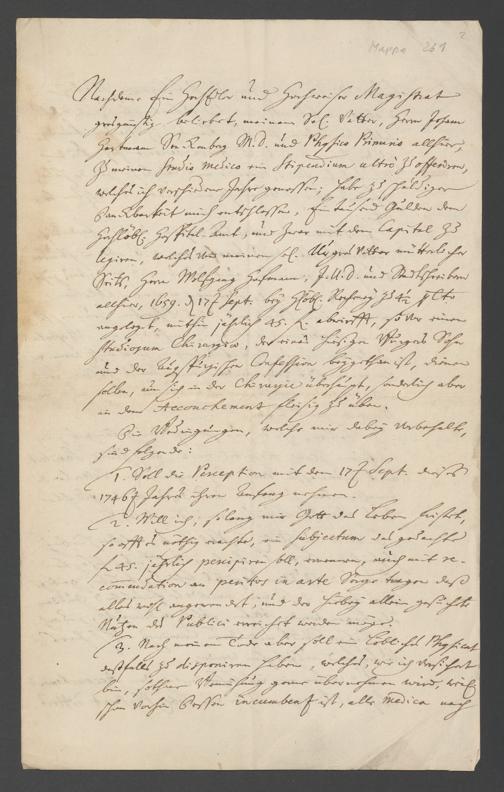 Mappe 261
2
Nachdeme Ein HochEdler und Hochweiser Magistrat
grosgünstig beliebet, meinem Sel. Vatter, Herrn Johann
Hartmann Senckenberg M.D. und Physico Primario allhier,
zu meinem Studio medico ein Stipendium ultro zu offeriren,
welches ich verschiedene Jahre genossen; habe zu schuldiger
Danckbarkeit mich entschlossen, Ein tausend Gulden dem
Hochlöbl. Hospital-Amt, und zwar mit dem Capital zu
legiren, welches von meinem sel. Uhrgrosvatter mütterlicher
Seits, Herrn Wolfgang Hofmann, J.U.D. und Stadtschreiber
allhier, 1659. d. 17 Sept. bey Löbl. Rechney zu 4½ pCto
angelegt, mithin jährlich 45. f. abwirfft, so vor einen
studiosum Chirurgiae, der eines hiesigen Burgers Sohn
und der Augspurgischen Confession beygethan ist, dienen
sollen, um sich in der Chirurgie überhaupt, sonderlich aber
in dem Accouchement fleisig zu üben.
Die Bedingungen, welche mir dabey vorbehalte,
sind folgende:
1. Soll die Perception mit dem 17 Sept. dieses
1746 Jahres ihren Anfang nehmen.
2. Will ich, solang mir Gott das Leben fristet,
so offt es nöthig erachte, ein subjectum das gedachte
f. 45. jährlich percipiren soll, ernennen, auch mit re-
comendation an peritos in arte Sorge tragen daß
alles wohl angewendet, und der hierbey allein gesuchte
Nutzen des Publici erreichet werden möge.
3. Nach meinem Tode aber soll ein Löbliches Physicat
desfalls zu disponiren haben, welches, wie ich versichert
bin, solche Bemühung gerne übernehmen wird, weil
schon vorhin dessen incumbenz ist, alle medica nach